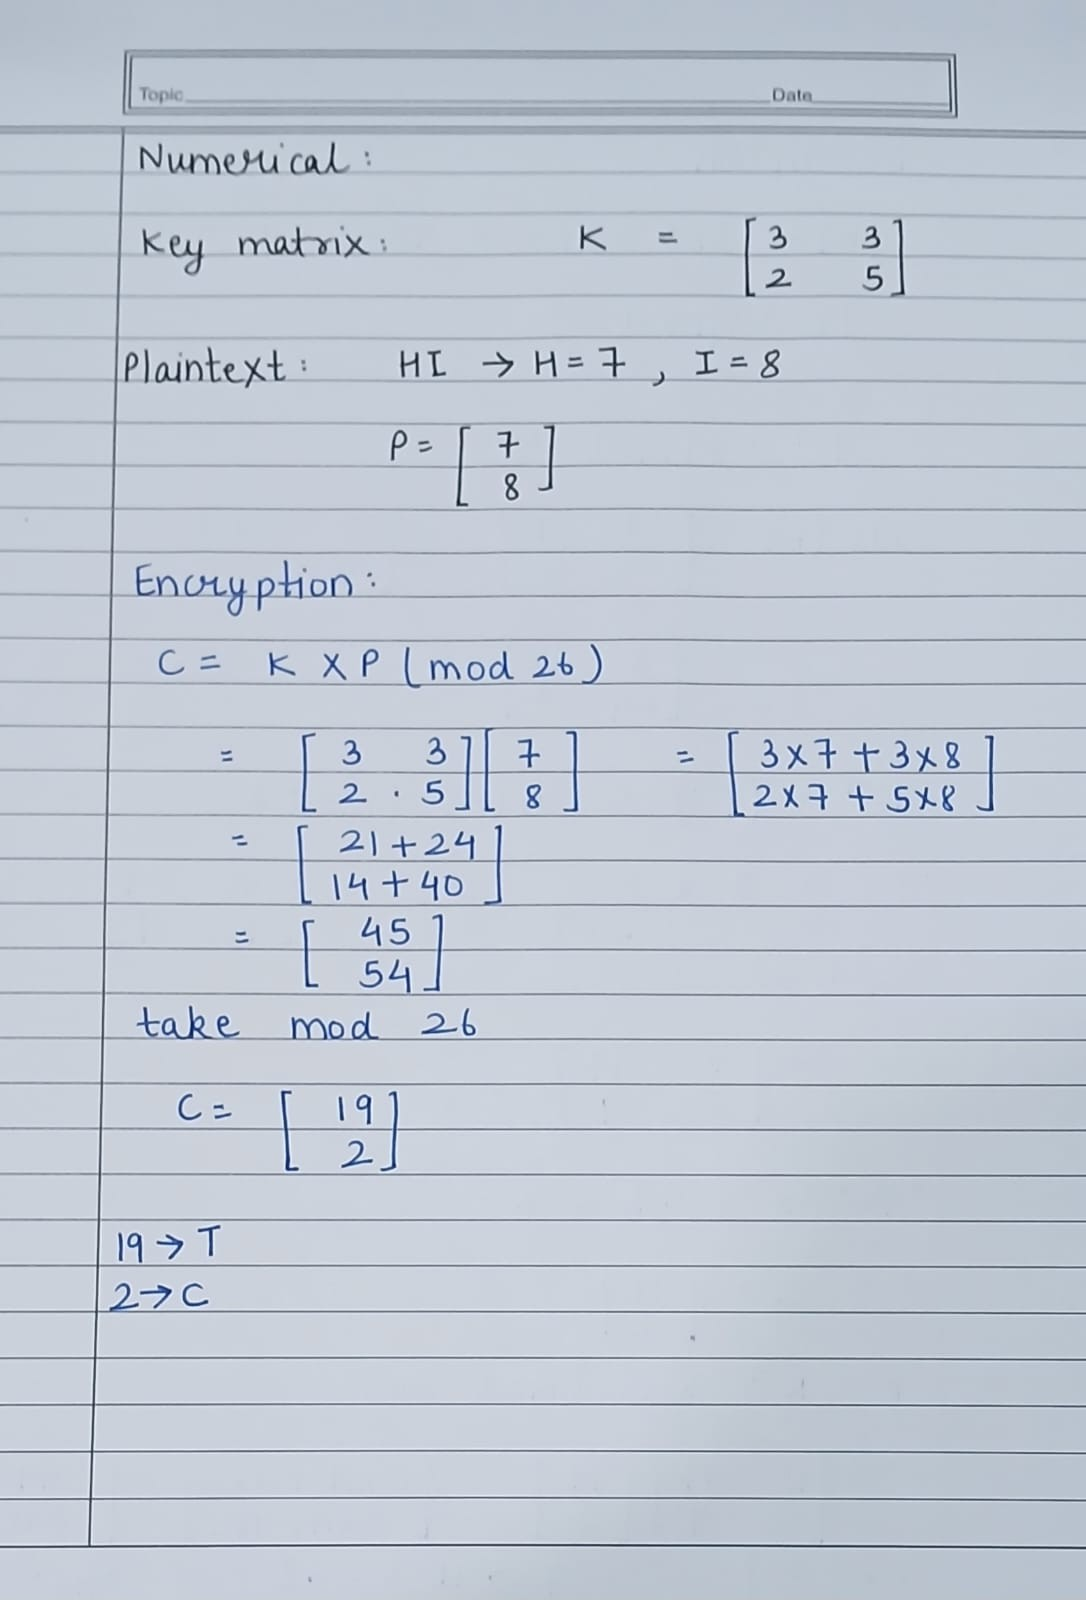 Topic Date
Numerical:
Key matrix: K = [ 3 3
2 5 ]
Plaintext: HI → H = 7 , I = 8
P = [ 7
8 ]
Encryption:
C = K X P ( mod 26 )
= [ 3 3 ] [ 7 ] = [ 3x7 + 3x8 ]
[ 2 . 5 ] [ 8 ] [ 2x7 + 5x8 ]
= [ 21 + 24
14 + 40 ]
= [ 45
54 ]
take mod 26
C = [ 19
2 ]
19 → T
2 → C